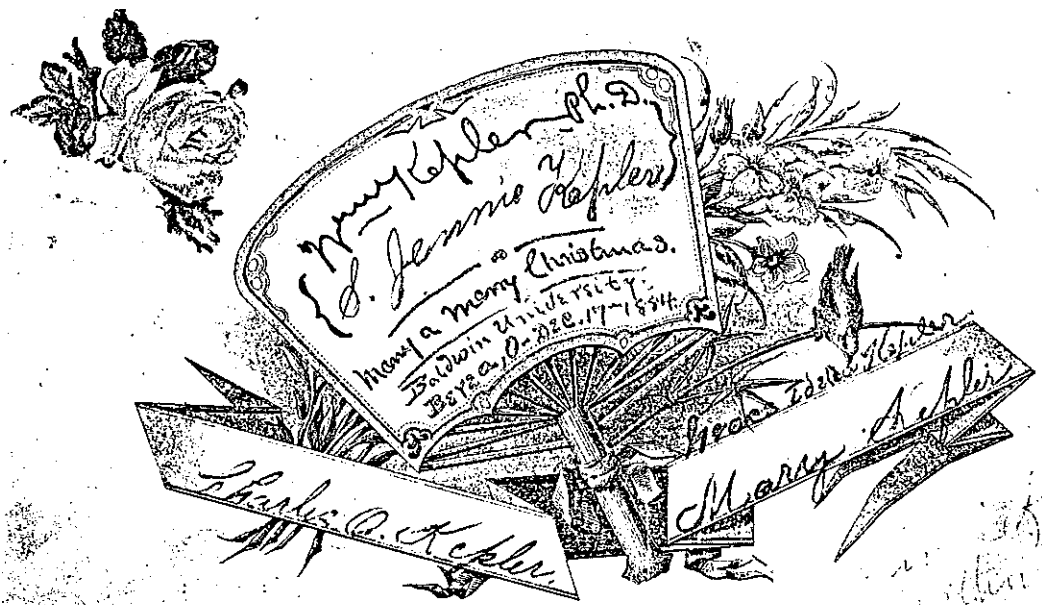 Wm Kepler Ph.D.,
S. Jennie Kepler
Many a Merry Christmas.
Baldwin University.
Berea, O. Dec. 17th 1884.
Charles O. Kepler.
Kepler
Harry Kepler